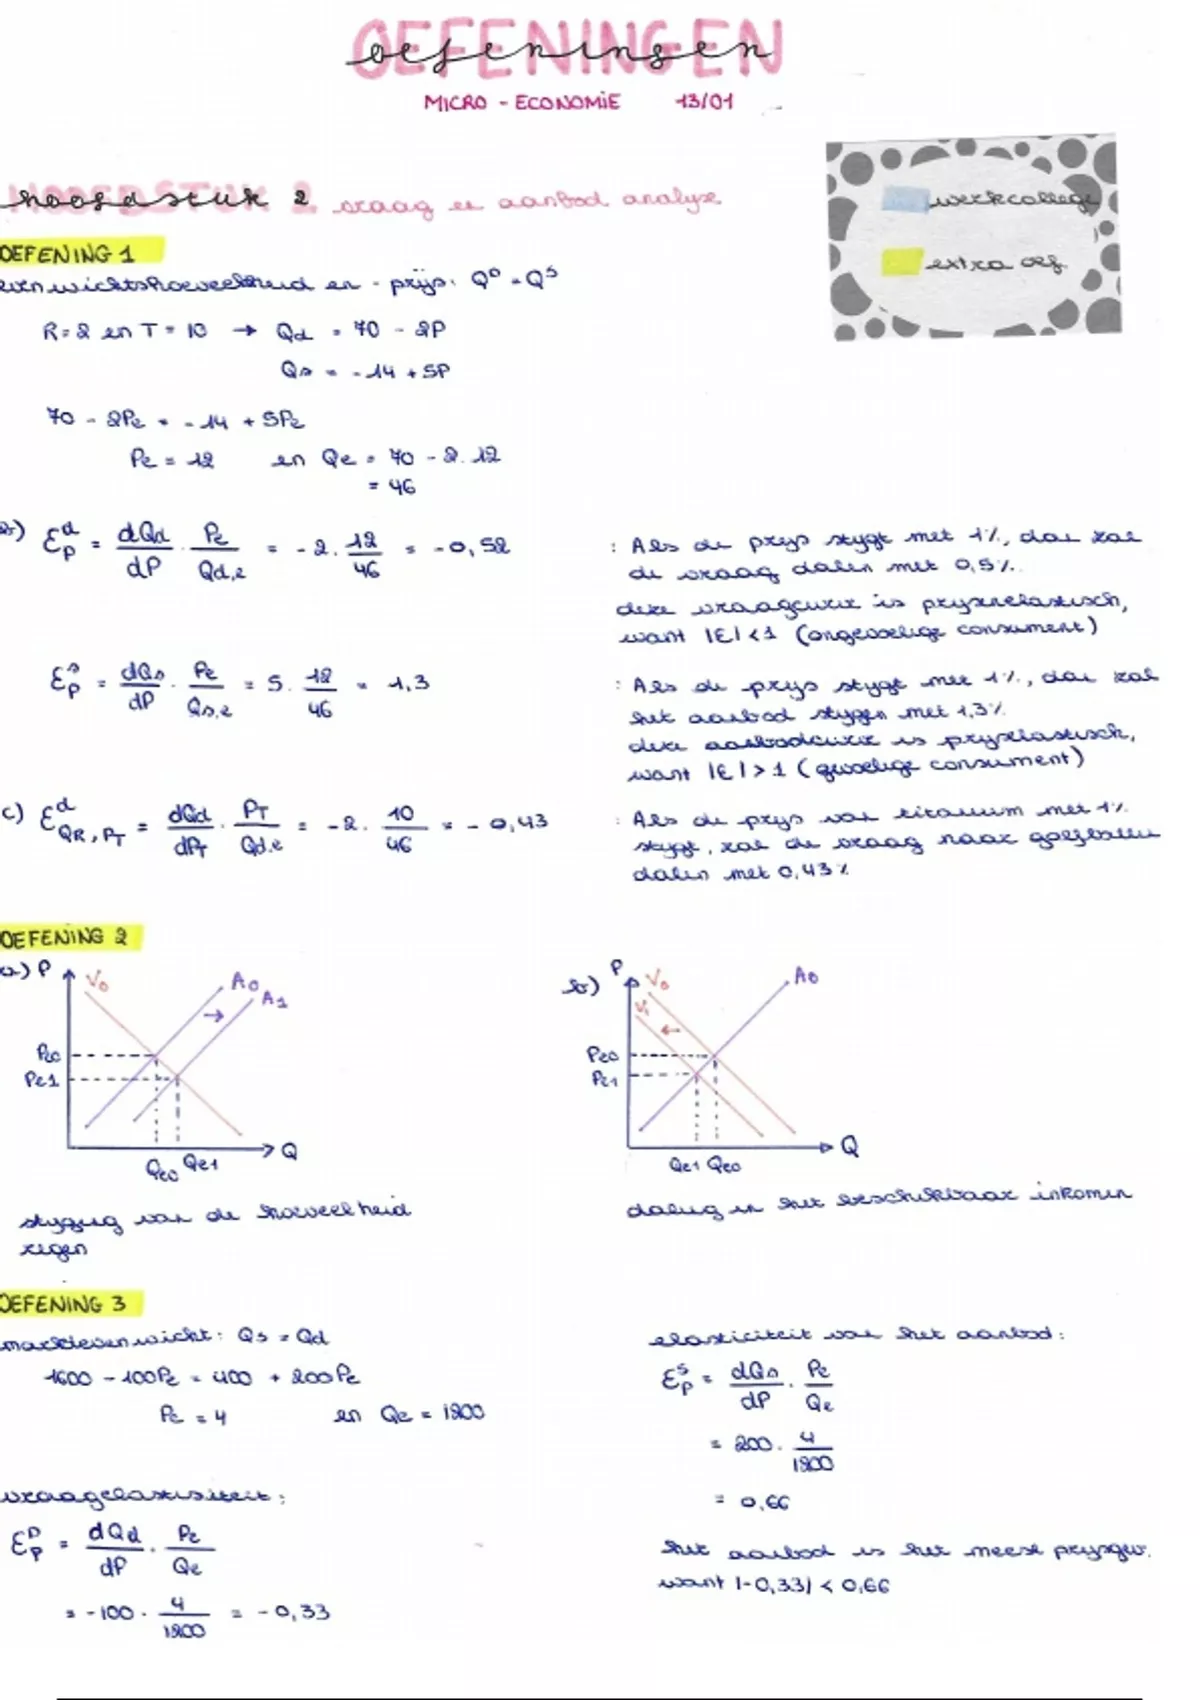 OEFENINGEN
oefeningen
MICRO - ECONOMIE 13/01
HOOFDSTUK 2
hoofdstuk 2 vraag en aanbod analyse
werkcollege
extra oef.
OEFENING 1
evenwichtshoeveelheid en - prijs: Q^D = Q^S
R = 2 en T = 10 → Qd = 70 - 2P
Qs = -14 + 5P
70 - 2Pe = -14 + 5Pe
Pe = 12 en Qe = 70 - 2.12
= 46
b) Ɛ^d_P = dQd/dP . Pe/Qd,e = -2 . 12/46 = -0,52
: Als de prijs stijgt met 1%, dan zal
de vraag dalen met 0,5%.
deze vraagcurve is prijsinelastisch,
want |Ɛ| < 1 (ongevoelige consument)
Ɛ^s_P = dQs/dP . Pe/Qs,e = 5 . 12/46 = 1,3
: Als de prijs stijgt met 1%, dan zal
het aanbod stijgen met 1,3%
deze aanbodcurve is prijselastisch,
want |Ɛ| > 1 (gevoelige consument)
c) Ɛ^d_QR,PT = dQd/dPT . PT/Qd,e = -2 . 10/46 = -0,43
: Als de prijs van titanium met 1%
stijgt, zal de vraag naar golfballen
dalen met 0,43%
OEFENING 2
a) P
V0 A0
A1
Pe0
Pe1
Q
Qe0 Qe1
stijging van de hoeveelheid
regen
b) P
V0 A0
V1
Pe0
Pe1
Q
Qe1 Qe0
daling in het beschikbaar inkomen
OEFENING 3
marktevenwicht: Qs = Qd
1600 - 100Pe = 400 + 200Pe
Pe = 4 en Qe = 1200
vraagelastisiteit:
Ɛ^D_P = dQd/dP . Pe/Qe
= -100 . 4/1200 = -0,33
elasticiteit van het aanbod:
Ɛ^s_P = dQs/dP . Pe/Qe
= 200 . 4/1200
= 0,66
het aanbod is het meest prijsgev.
want |-0,33| < 0,66